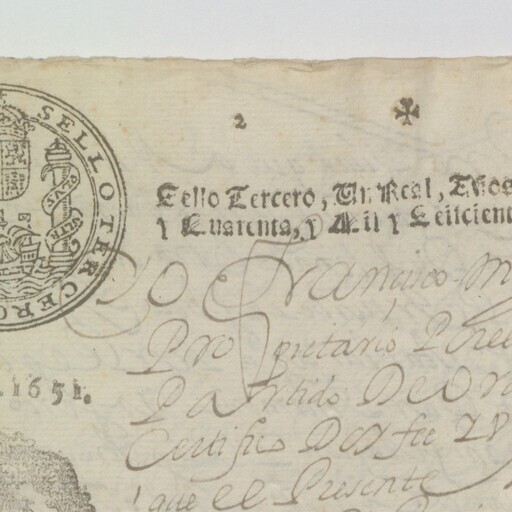 SELLO TERCERO
2
Sello Tercero, Un Real, Años
y Quarenta, y Mil y Seiscient
Yo Francisco M
Propietario
Partido De Or
Certifico Doy fee
que el Presente
1651.